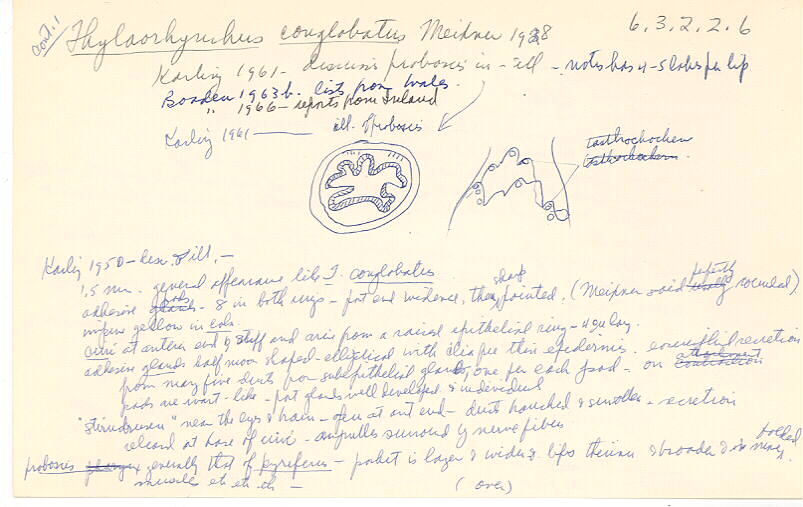 cont. 1
Thylacorhynchus conglobatus Meixner 1928
6.3.2.2.6
Karling 1961 - discusses proboscis in - ill - notes has 4-5 lobes per lip
Boaden 1963b. lists from Wales.
" 1966 - reports from Ireland
Karling 1961 ill. of proboscis
tasthrochochen
Karling 1950 - desc. & ill. -
1.5 mm. general appearance like T. conglobatus
adhesive pads - 8 in both rings - post end evidence, they sharp pointed. (Meixner said rounded)
yellow in
cirri at anterior end of and arise from a raised epithelial ring - 4
adhesive glands half moon shaped - elliptical with thin epidermis. secretion
from many fine ducts from subepithelial glands, one per each pad - on
pads are wart-like - post glands well developed & individual
"stirndrusen" near the eyes & brain - open at ant end - ducts bunched & smaller - secretion
at base of cirri - ampulles surround by nerve fibers
proboscis generally that of pyriferus - pocket is larger & wider & lips thinner & broader &
muscles etc etc etc -
(over)